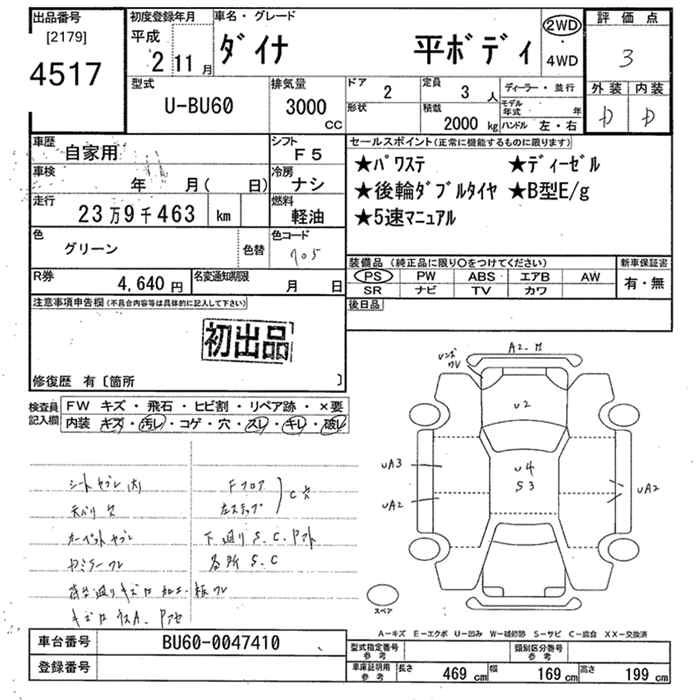 出品番号 初度登録年月 車名・グレード 2WD 評価点
[2179] 平成 ダイナ 平ボディ 4WD 3
4517 2 11月
型式 排気量 ドア 2 定員 3人 ディーラー・並行 外装 内装
U-BU60 3000cc 形状 積載 2000kg モデル年式 年 D D
ハンドル 左・右
車歴 自家用 シフト F5 セールスポイント(正常に機能するものに限ります)
車検 年 月( 日) 冷房 ナシ ★パワステ ★ディーゼル
走行 23万9千463 km 燃料 軽油 ★後輪ダブルタイヤ ★B型E/g
★5速マニュアル
色 グリーン 色替 色コード 705
装備品 (純正品に限り○をつけてください) 新車保証書
R券 4,640円 名変通知期限 月 日 PS PW ABS エアB AW 有・無
SR ナビ TV カワ
注意事項申告欄(不具合内容等は具体的に記入して下さい) 後日品
初出品
修復歴 有〔箇所 〕
検査員記入欄 FW キズ・飛石・ヒビ割・リペア跡・×要
内装 キズ・汚レ・コゲ・穴・スレ・キレ・破レ
A2.
U2
U4
S3
UA3
UA2
UA2
シートヤブレ Fフロア
左ステップ
カーペットヤブレ 下廻りS.C.
各所S.C
スペア
A-キズ E-エクボ U-凹み W-補修跡 S-サビ C-腐食 XX-交換済
車台番号 BU60-0047410 型式指定番号 参考 類別区分番号 参考
登録番号 車庫証明用 参考 長さ 469cm 幅 169cm 高さ 199cm